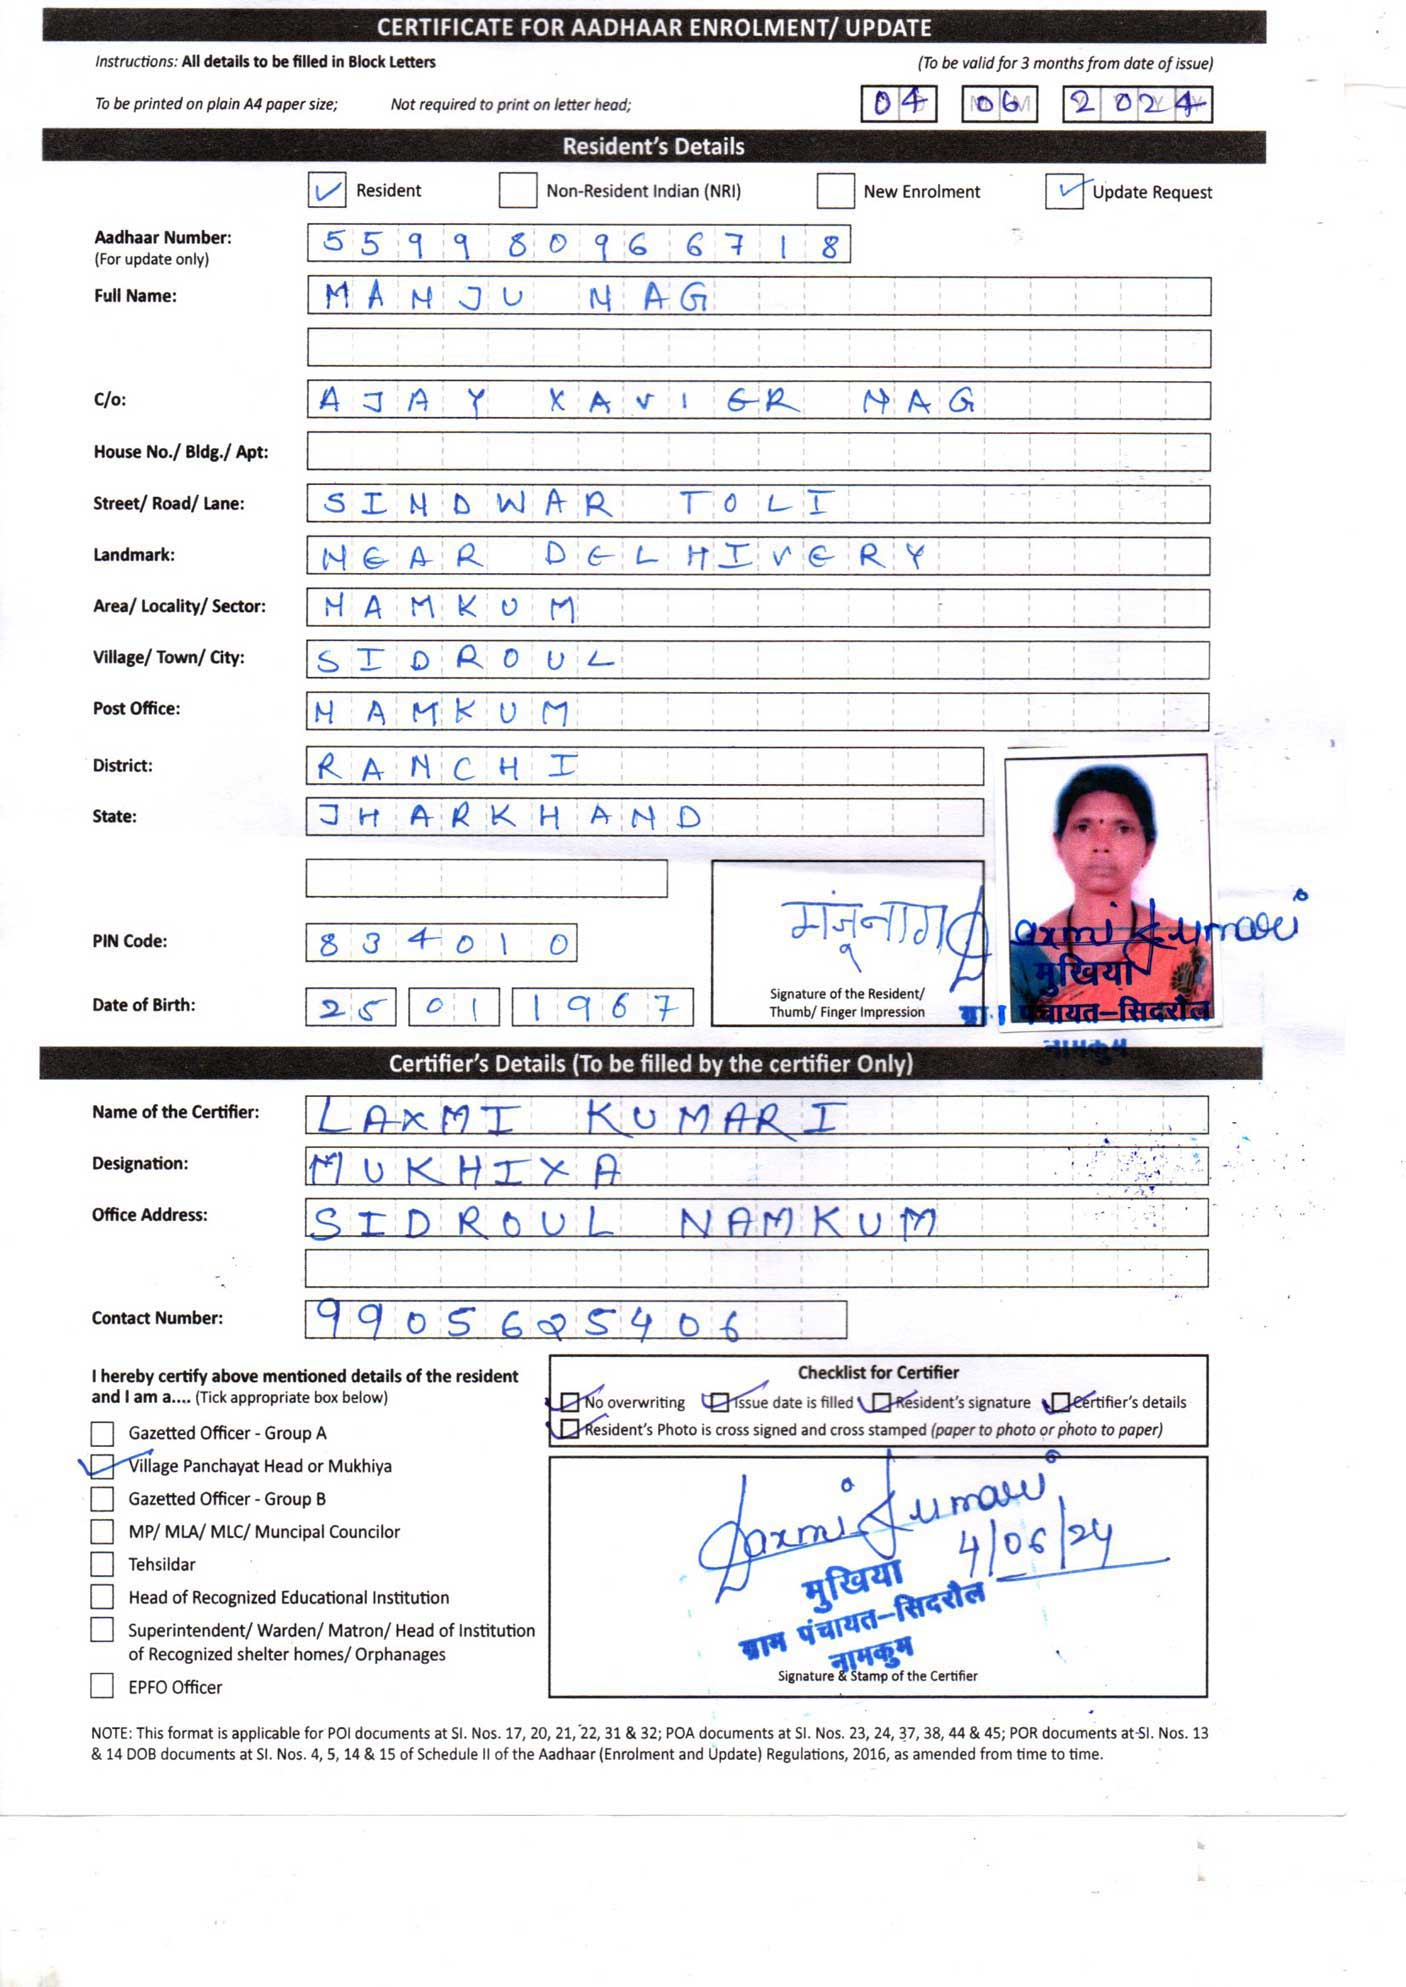 CERTIFICATE FOR AADHAAR ENROLMENT/ UPDATE
Instructions: All details to be filled in Block Letters (To be valid for 3 months from date of issue)
To be printed on plain A4 paper size; Not required to print on letter head; 04 06 2024
Resident's Details
Resident Non-Resident Indian (NRI) New Enrolment Update Request
Aadhaar Number: 559980966718
(For update only)
Full Name: MANJU NAG
C/o: AJAY XAVIER NAG
House No./ Bldg./ Apt:
Street/ Road/ Lane: SINDWAR TOLI
Landmark: NEAR DELHIVERY
Area/ Locality/ Sector: NAMKUM
Village/ Town/ City: SIDROUL
Post Office: NAMKUM
District: RANCHI
State: JHARKHAND
मंजू नाग Laxmi Kumari
PIN Code: 834010
मुखिया
Signature of the Resident/
Date of Birth: 25 01 1967 Thumb/ Finger Impression ग्राम पंचायत–सिदरौल
नामकुम
Certifier's Details (To be filled by the certifier Only)
Name of the Certifier: LAXMI KUMARI
Designation: MUKHIYA
Office Address: SIDROUL NAMKUM
Contact Number: 9905625406
I hereby certify above mentioned details of the resident
and I am a.... (Tick appropriate box below)
Gazetted Officer - Group A
Village Panchayat Head or Mukhiya
Gazetted Officer - Group B
MP/ MLA/ MLC/ Muncipal Councilor
Tehsildar
Head of Recognized Educational Institution
Superintendent/ Warden/ Matron/ Head of Institution
of Recognized shelter homes/ Orphanages
EPFO Officer
Checklist for Certifier
No overwriting Issue date is filled Resident's signature Certifier's details
Resident's Photo is cross signed and cross stamped (paper to photo or photo to paper)
Laxmi Kumari
4/06/24
मुखिया
ग्राम पंचायत–सिदरौल
नामकुम
Signature & Stamp of the Certifier
NOTE: This format is applicable for POI documents at SI. Nos. 17, 20, 21, 22, 31 & 32; POA documents at SI. Nos. 23, 24, 37, 38, 44 & 45; POR documents at SI. Nos. 13
& 14 DOB documents at SI. Nos. 4, 5, 14 & 15 of Schedule II of the Aadhaar (Enrolment and Update) Regulations, 2016, as amended from time to time.